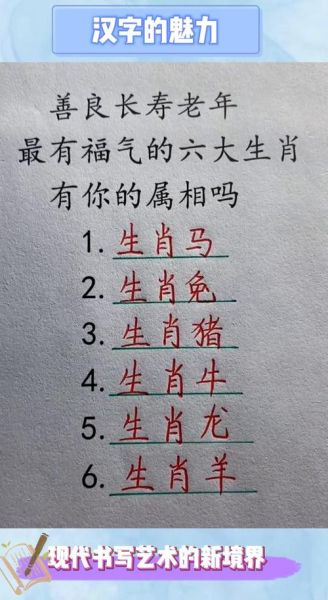 汉字的魅力
善良长寿老年
最有福气的六大生肖
有你的属相吗
1.生肖马
2.生肖兔
3.生肖猪
4.生肖牛
5.生肖龙
6.生肖羊
现代书写艺术的新境界